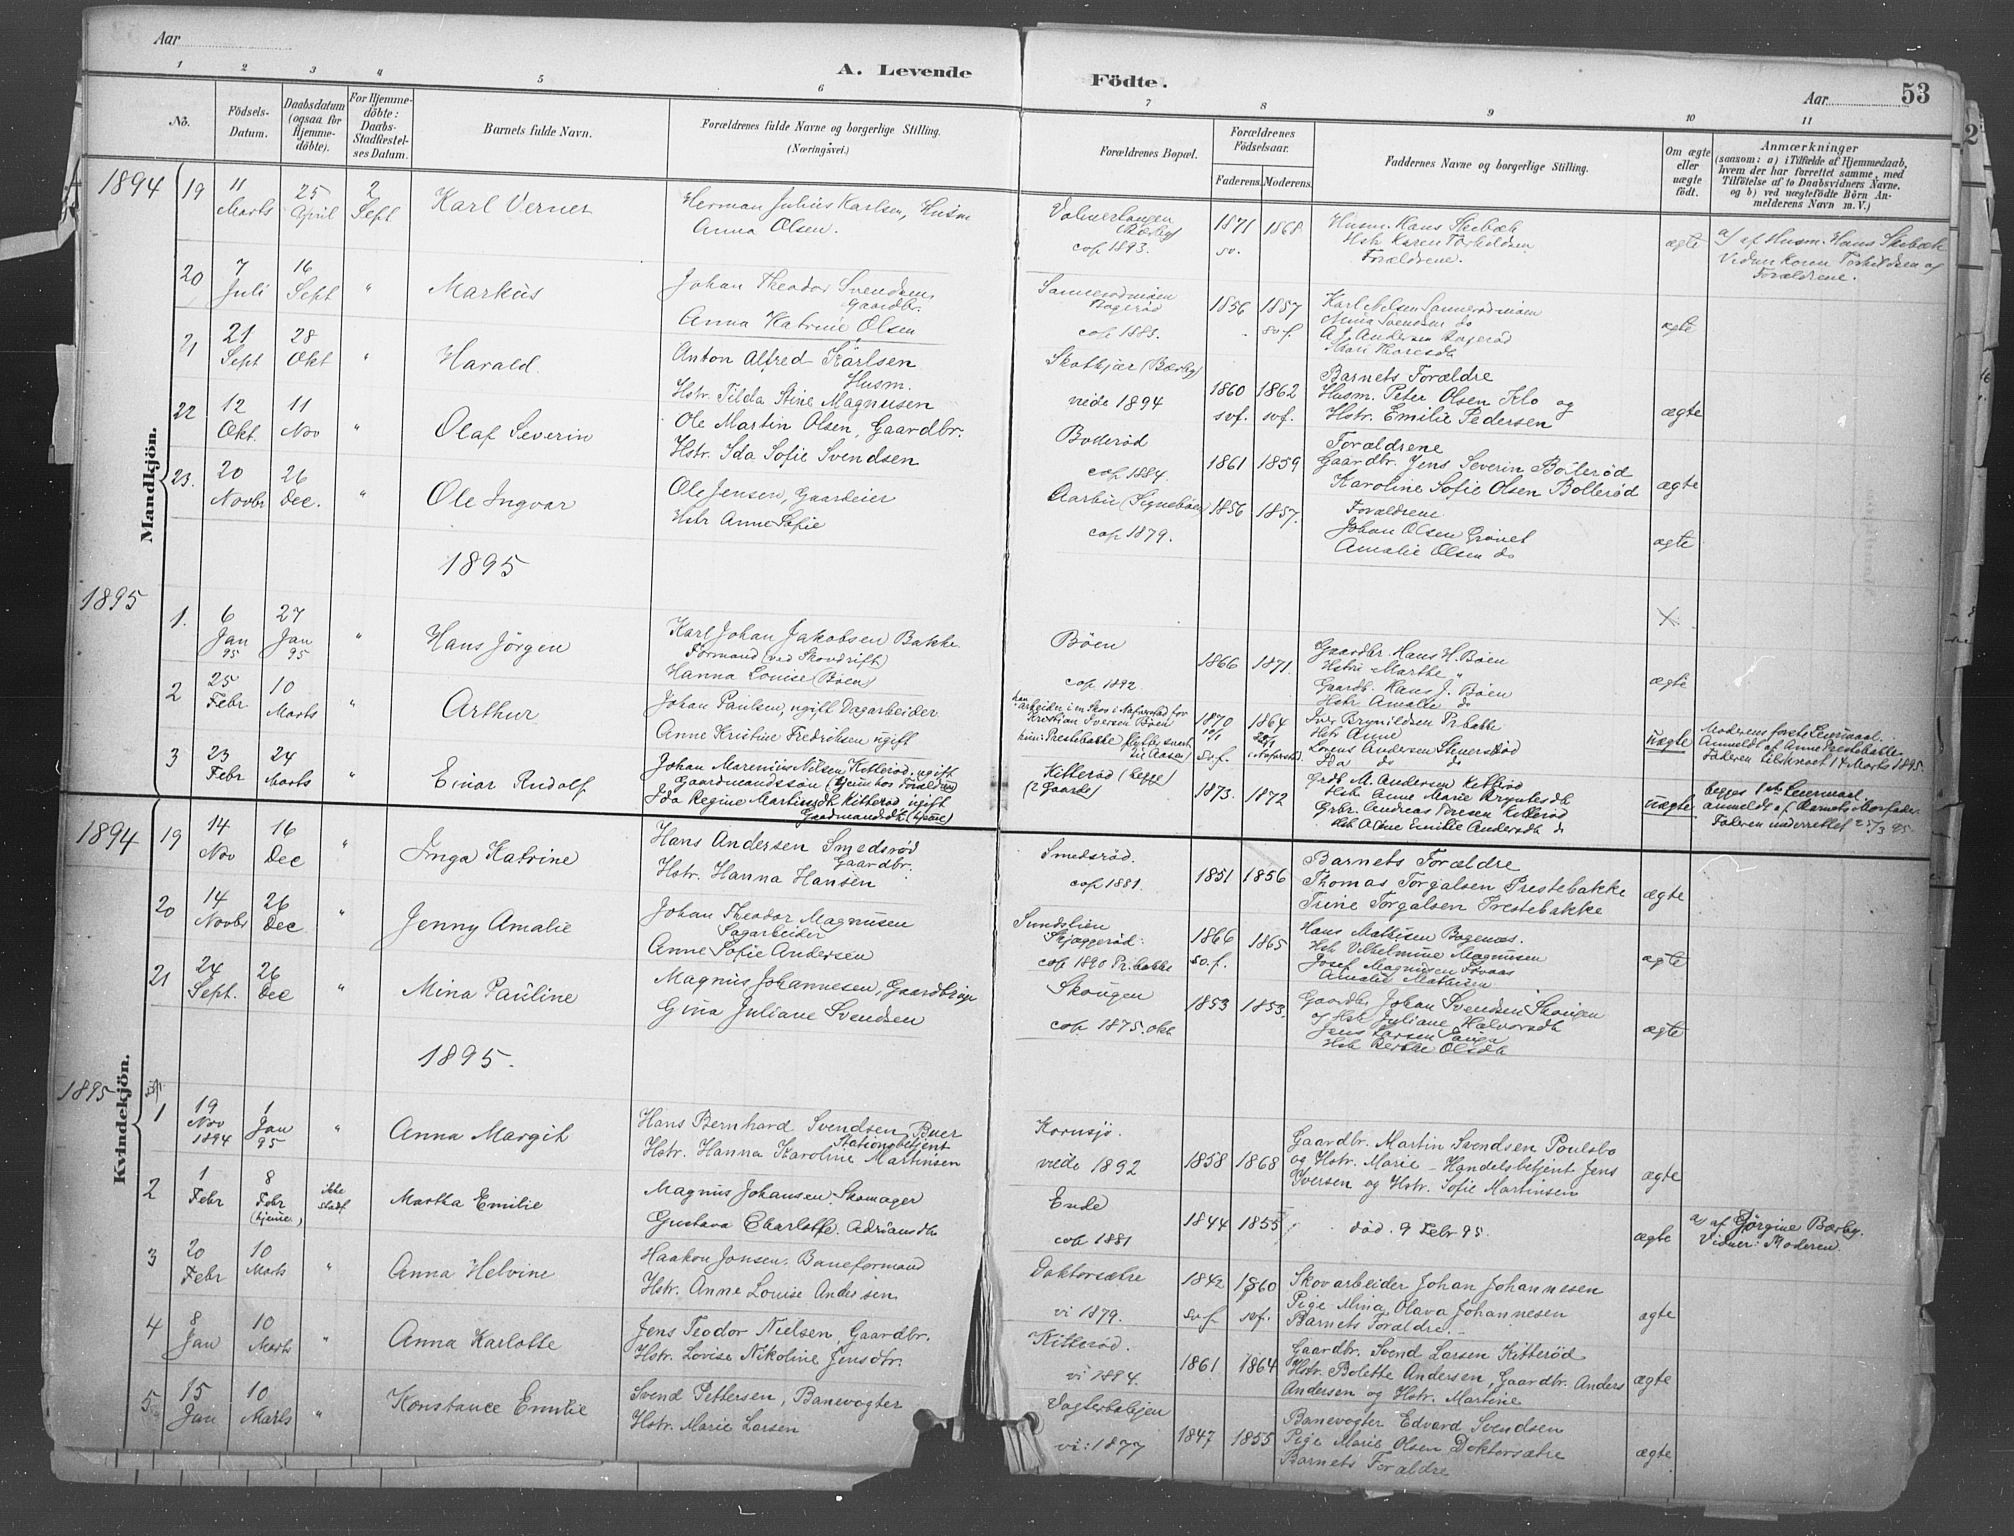 Aar
A. Levende
Födte.
Aar
53
1 2 3 4 5 6 7 8 9 10 11
No.
Födsels-
Datum.
Daabsdatum
(ogsaa for
Hjemme-
döbte).
For Hjemme-
döbte:
Daabs-
Stadfæstel-
ses Datum.
Barnets fulde Navn.
Forældrenes fulde Navne og borgerlige Stilling.
(Næringsvei.)
Forældrenes Bopæl.
Forældrenes
Födselsaar.
Faderens. Moderens.
Faddernes Navne og borgerlige Stilling.
Om ægte
eller
uægte
födt.
Anmærkninger
(saasom: a) i Tilfælde af Hjemmedaab,
hvem der har forrettet samme, med
Tilföielse af to Daabsvidners Navne.
og b) ved uægtefödte Börn An-
melderens Navn m. V.)
Mandkjön.
1894
19
11
Marts
25
April
2
Sept
Karl Verner
Herman Julius Karlsen, Husm
Anna Olsen.
(Bærby)
cop 1893.
1871 1868
Husm. Hans Skibæk
Hstr Karen Torkildsen
Forældrene.
ægte
a) af Husm. Hans Skibæk
Vidner Karen Torkildsen og
Forældrene.
20
7
Juli
16
Sept
"
Markus
Johan Theodor Svendsen
Gaardbr.
Anna Katrine Olsen
Sannerödmoen
cop 1883.
1856 1857
sv.f.
Karl Nilsen Sannerödmoen
Mina Svendsen do
ægte
21
21
Sept
28
Okt
"
Harald.
Anton Alfred Karlsen
Husm.
Hstr. Tilda Stine Magnusen
Skotkjær (Bærby)
viede 1894
1860 1862
svf. svf.
Barnets Forældre
Husm. Peter Olsen Klo og
Hstr. Emilie Pedersen
ægte
22
12
Okt.
11
Nov
"
Olaf Severin
Ole Martin Olsen, Gaardbr.
Hstr. Ida Sofie Svendsen
Bolleröd
cop 1884.
1861 1859
Forældrene
Gaardbr. Jens Severin Bölleröd
Karoline Sofie Olsen Bolleröd
ægte
23.
20
Novbr
26
Dec.
"
Ole Ingvar
Ole Jensen, Gaardeier
Hstr Anne Sofie
Aarbu (Signeböen)
cop 1879.
1856 1857.
Forældrene
Johan Olsen
Amalie Olsen do
ægte
1895
1895
1.
6
Jan
95
27
Jan
95
"
Hans Jörgen
Karl Johan Jakobsen Bakke
Formand (ved Skovdrift)
Hanna Louise (Böen)
Böen
cop 1892
1866 1871.
Gaardbr. Hans H. Böen
Hstru Marthe "
Gaardb. Hans J. Böen
Hstr Amalie do
ægte
2
25
Febr
10
Marts
"
Arthur
Johan Paulsen, ugift Dagarbeider
Anne Kristine Fredriksen ugift
Kristian Iversen Böen
1870 1864
sv.f.
Iver Brynildsen Pr.bakke
Hstr Anne
Lorens Andersen
Ida do do
uægte
Moderens förste Leiermaal.
Anmeldt af Anne Prestebakke.
Faderen tilskrevet 14 Marts 1895.
3
23
Febr
24
Marts
"
Einar Rudolf
Johan Marenius Nilsen Kitteröd, ugift
Gaardmandssön (hjem hos Forældrene)
Ida Regine Martinsdt. Kitteröd ugift
Gaardmandsdt. (hjeme)
Kitteröd (begge)
(2 Gaarde)
1873. 1872
Grdb. M. Andersen Kitteröd
Hstr Anne Marie Bryntesdt
Grbr. Andreas Kitteröd
Hstr Anne Emilie Andersdt do
uægte
begges 1ste Leiermaal.
anmeldt af Barnets Morfader
Faderen underrettet 25/3 95.
Kvindekjön.
1894
19
14
Nov
16
Dec
"
Inga Katrine
Hans Andersen Smedsröd
Gaardbr.
Hstr. Hanna Hansen
Smedsröd.
cop 1881.
1851 1856
Barnets Forældre
Thomas Torgalsen Prestebakke
Trine Torgalsen Prestebakke
ægte
20
14
Novbr
26
Dec
"
Jenny Amalie
Johan Theodor Magnusen
Sagarbeider
Anne Sofie Andersen
Sundslien
Skjæggeröd.
cop 1890 Pr.bakke
1866 1865
sv.f.
Hans Mathisen Bogenæs.
Hstr Vilhelmine Magnusen
Josef Magnusen
Amalie Mathisen
ægte
21
24
Sept.
26
Dec
"
Mina Pauline
Magnus Johannesen, Gaardbruger
Gina Juliane Svendsen
Skougen
cop 1875. okt
1853 1853.
Gaardbr Johan Svendsen Skougen
og Hstr Juliane Halvorsdt
Jens Larsen
Hstr Berthe Olsdt
ægte
1895.
1895
1
19
Nov
1894
1
Jan
95
"
Anna Margit
Hans Bernhard Svendsen Buer
Stationsbetjent
Hstr. Hanna Karoline Martinsen
Kornsjö.
viede 1892
1858 1868
Gaardbr. Martin Svendsen Paulsbo
og Hstr. Marie - Handelsbetjent Jens
Iversen og Hstr. Sofie Martinsen
ægte
2
1
Febr
8
Febr
(hjemme)
ikke
stadf.
Martha Emilie
Magnus Johansen Skomager
Gustava Charlotte Adriansdt
Ende
cop 1881
1844 1855
död 9 Febr 95.
ægte
a) af Jörgine Bærby.
Vidner: Moderen.
3
20
Febr
10
Marts
"
Anna Helvine
Haakon Jonsen. Baneformand
Hstr. Anne Louise Andersen
Doktorsætre
vi 1879.
1842 1860
svf. svf.
Skovarbeider Johan Johannesen
Pige Mina Olava Johannesen
Barnets Forældre.
ægte
4
8
Jan
10
Marts
"
Anna Karlotte
Jens Teodor Nielsen, Gaardbr.
Hstr. Lovise Nikoline Jensdtr.
Kitteröd.
vi 1884
1861 1864
Gaardbr. Svend Larsen Kitteröd
Hstr. Bolette Andersen, Gaardbr. Anders
Andersen og Hstr. Martine
ægte
5
15
Jan
10
Marts
"
Konstance Emilie
Svend Pettersen, Banevogter
Hstr. Marie Larsen
vi: 1877
1847 1855
Banevogter Edvard Svendsen
Pige Marie Olsen Doktorsætre
Barnets Forældre
ægte